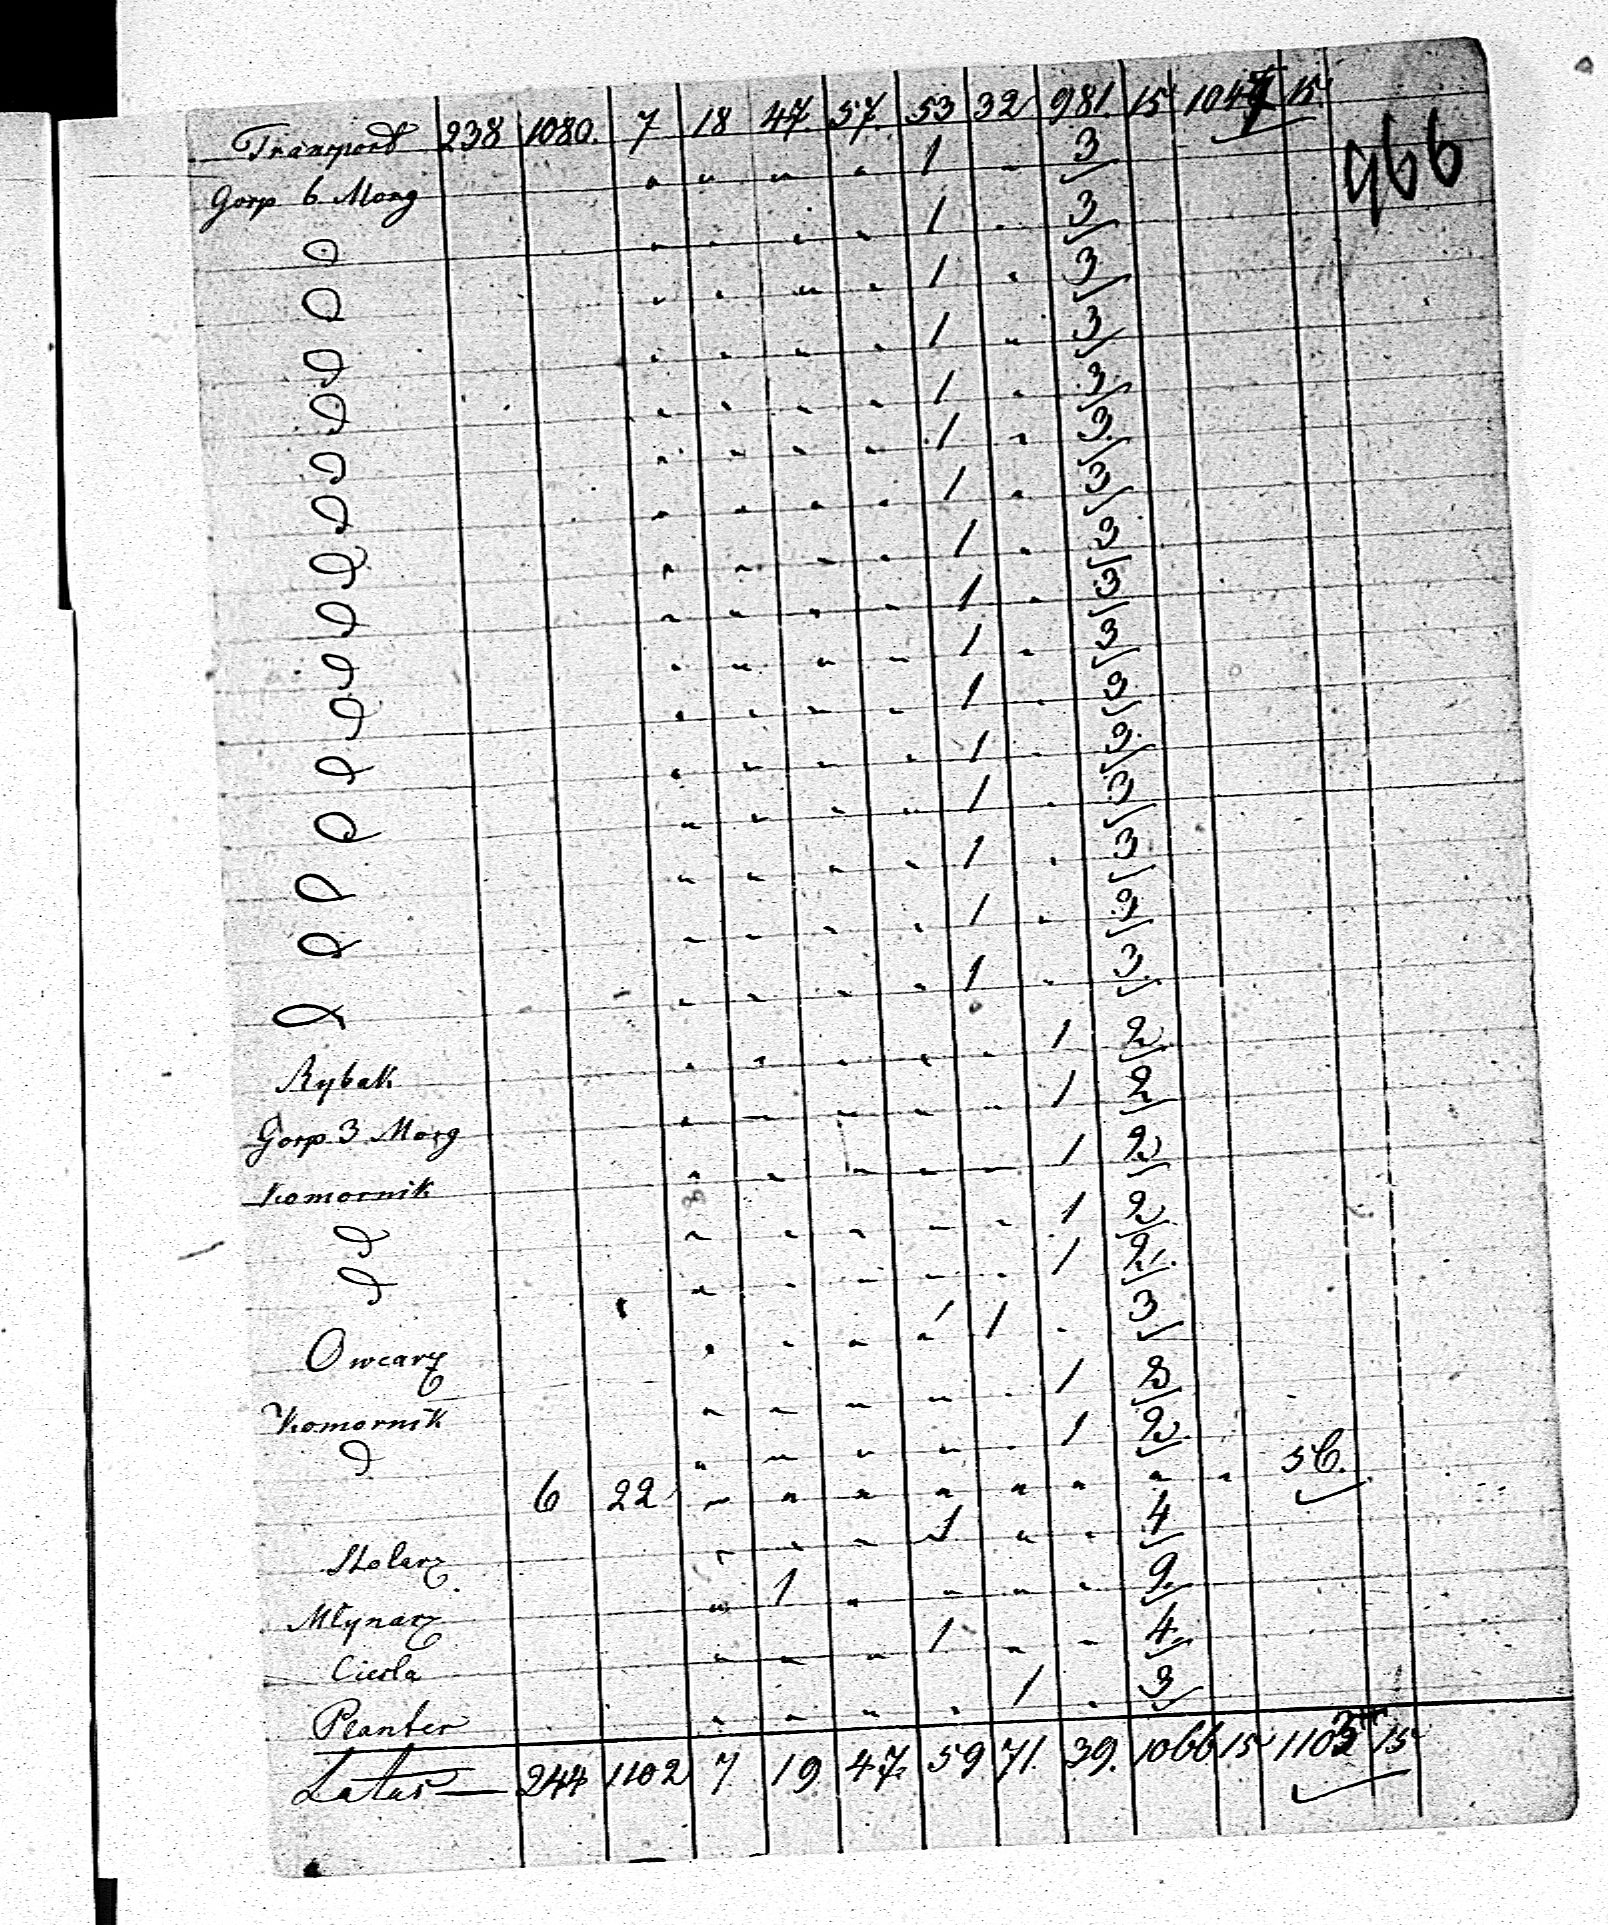 Transport 238 1080. 7 18 47. 57. 53 32 981. 15 1047 15.
966
Gorp 6 Morg " " " " 1 " 3
D " " " " 1 " 3
D " " " " 1 " 3
D " " " " 1 " 3
D " " " " 1 " 3
D " " " " 1 " 3
D " " " " 1 " 3
D " " " " 1 " 3
D " " " " 1 " 3
D " " " " 1 " 3
D " " " " 1 " 3
D " " " " 1 " 3
D " " " " 1 " 3
D " " " " 1 " 3
D " " " " 1 " 3
D " " " " 1 " 3
Rybak " " " " " 1 2
Gorp 3 Morg " " " " " 1 2
Komornik " " " " " 1 2
D " " " " " 1 2
D " " " " " 1 2
Owcarz " " " " 1 " 3
Komornik " " " " " 1 2
D " " " " " 1 2
6 22 " " " " " " " " 56.
Stolarz " " " 1 " " 4
Młynarz " 1 " " " " 9
Ciesla " " " 1 " " 4
Planter " " " " 1 " 3
Latus 244 1102 7 19 47. 59 71. 39. 1066 15 1103 15